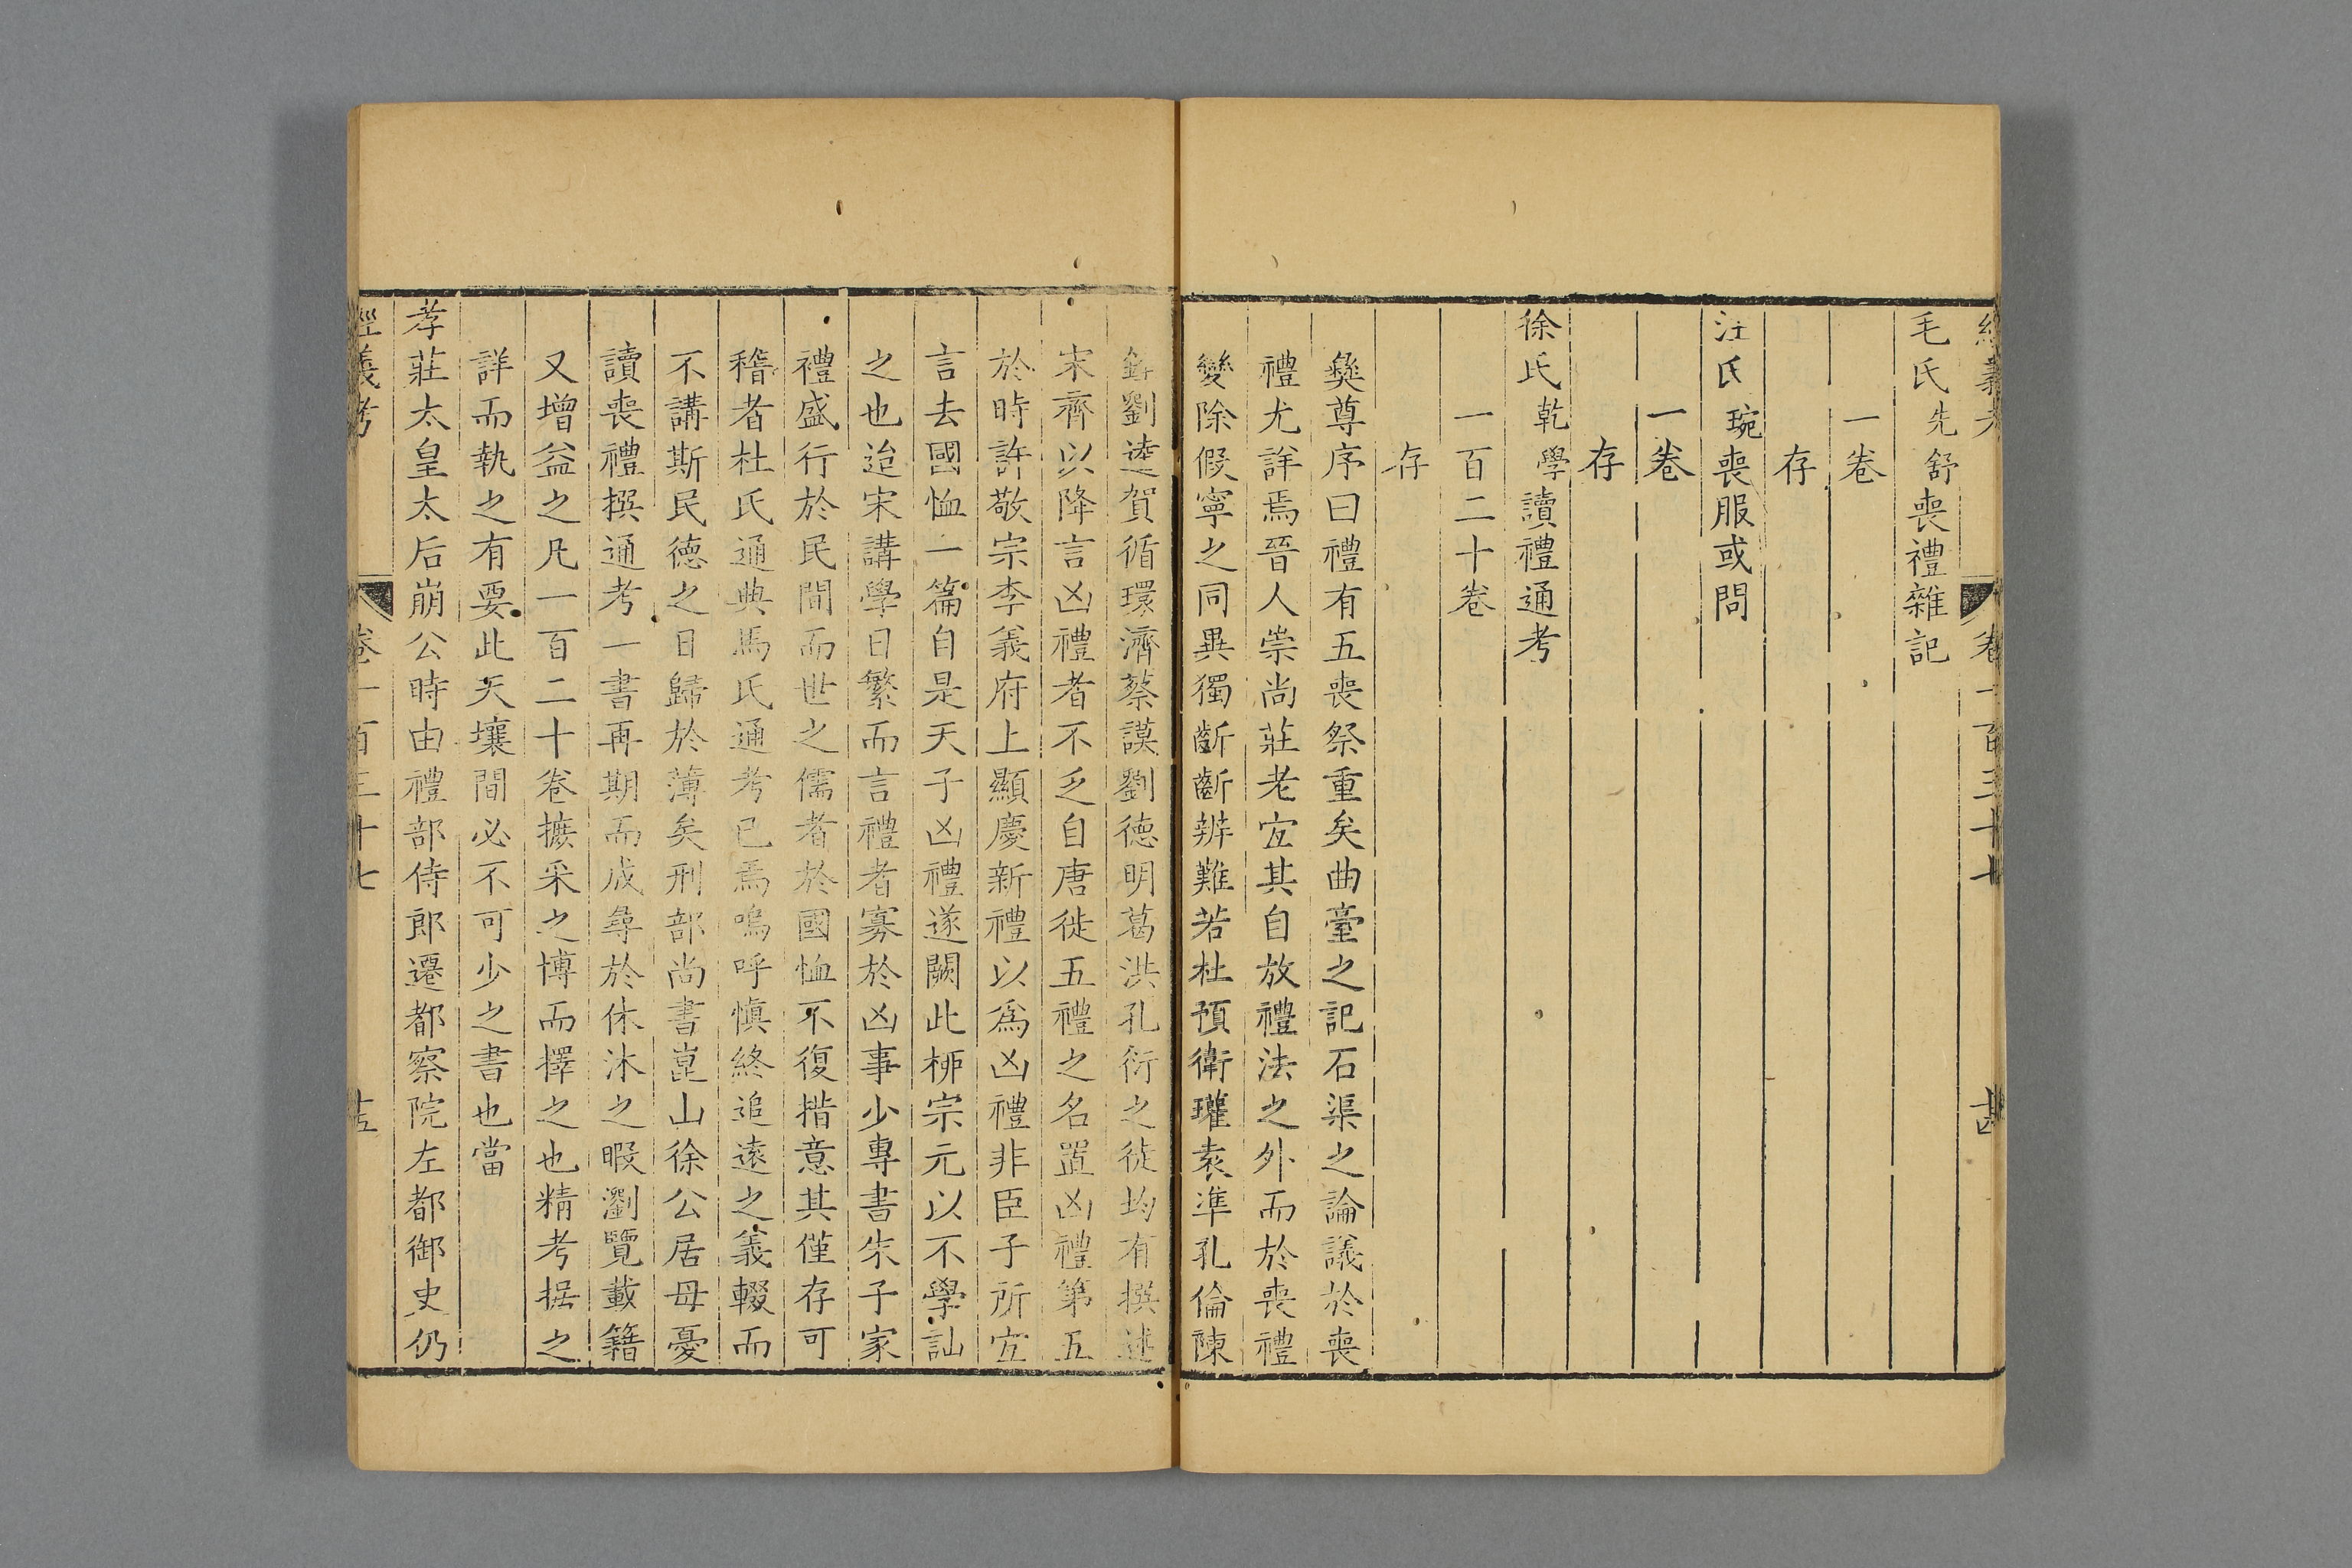 經義考 卷一百三十七 十四
毛氏先舒喪禮雜記
一卷
存
汪氏琬喪服或問
一卷
存
徐氏乾學讀禮通考
一百二十卷
存
彝尊序曰禮有五喪祭重矣曲臺之記石渠之論議於喪
禮尤詳焉晉人崇尚莊老宜其自放禮法之外而於喪禮
變除假寧之同異獨齗齗辨難若杜預衛瓘袁準孔倫陳
銓劉逵賀循環濟蔡謨劉德明葛洪孔衍之徒均有撰述
宋齊以降言凶禮者不乏自唐徙五禮之名置凶禮第五
於時許敬宗李義府上顯慶新禮以爲凶禮非臣子所宜
言去國恤一篇自是天子凶禮遂闕此柳宗元以不學訕
之也迨宋講學日繁而言禮者寡於凶事少專書朱子家
禮盛行於民間而世之儒者於國恤不復措意其僅存可
稽者杜氏通典馬氏通考已焉嗚呼愼終追遠之義輟而
不講斯民德之日歸於薄矣刑部尚書崑山徐公居母憂
讀喪禮撰通考一書再期而成尋於休沐之暇瀏覽載籍
又增益之凡一百二十卷摭采之博而擇之也精考据之
詳而執之有要此天壤間必不可少之書也當
孝莊太皇太后崩公時由禮部侍郎遷都察院左都御史仍
經義考 卷一百三十七 十五